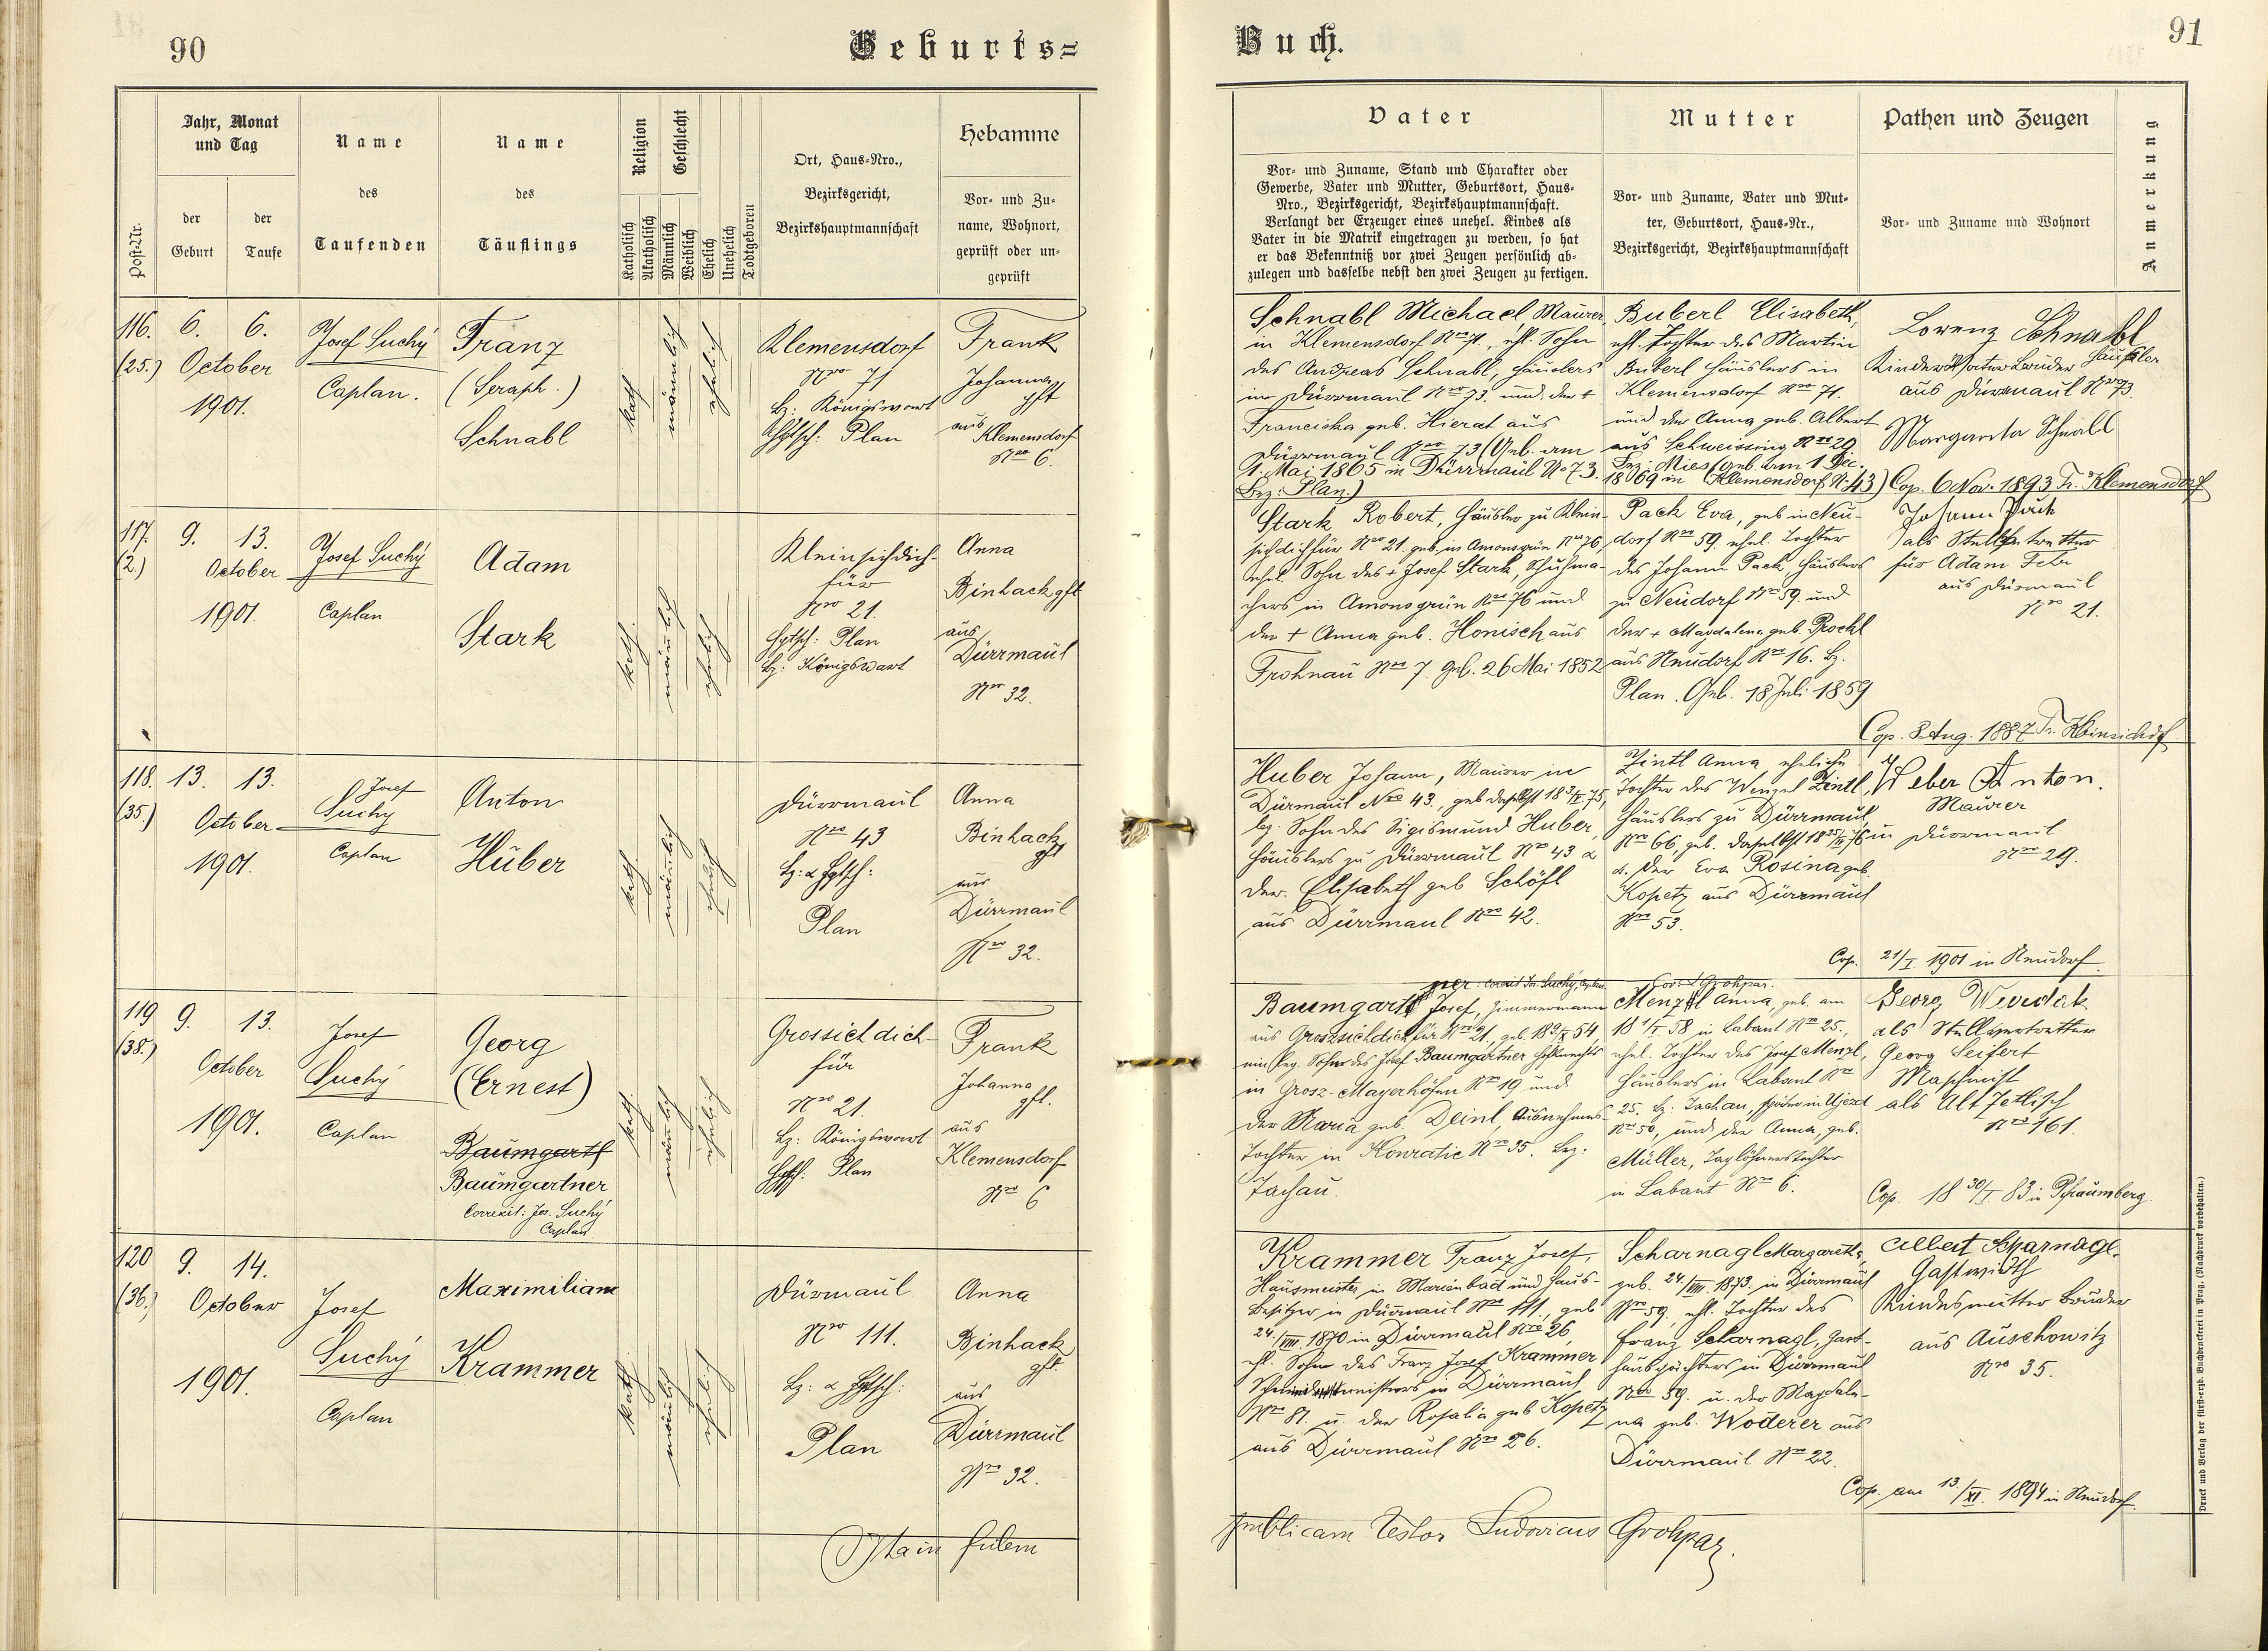 90
Geburts=
Post-Nr.
Jahr, Monat
und Tag
der
Geburt
der
Taufe
Name
des
Taufenden
Name
des
Täuflings
Religion
Katholisch
Akatholisch
Geschlecht
Männlich
Weiblich
Ehelich
Unehelich
Todtgeboren
Ort, Haus-Nro.,
Bezirksgericht,
Bezirkshauptmannschaft
Hebamme
Vor- und Zu-
name, Wohnort,
geprüft oder un-
geprüft
116. 6. 6.
(25.) October
1901.
Josef Suchý
Caplan.
Franz
(Seraph.)
Schnabl
kath
männlich
ehelich
Klemensdorf
Nro 71
Bz: Königswart
Hptsch: Plan
Frank
Johanna
gft
aus
Klemensdorf
Nro 6.
117. 9. 13.
(2.) October
1901.
Josef Suchý
Caplan
Adam
Stark
kath.
männlich
ehelich
Kleinsichdich-
für
Nro 21.
Hptsch: Plan
Bz: Königswart
Anna
Binhack gft
aus
Dürrmaul
Nro 32.
118. 13. 13.
(35.) October
1901.
Josef
Suchý
Caplan
Anton
Huber
kath.
männlich
ehelich
Dürrmaul
Nro 43
Bz: & Hptsch:
Plan
Anna
Binhack
gft
aus
Dürrmaul
Nro 32.
119 9. 13.
(38.) October
1901.
Josef
Suchý
Caplan
Georg
(Ernest)
Baumgartl
Baumgartner
Correxit: Jos. Suchý
Caplan
kath.
männlich
ehelich
Grossichdich-
für
Nro 21.
Bz: Königswart
Hptsch: Plan
Frank
Johanna
gft.
aus
Klemensdorf
Nro 6
120 9. 14.
(36.) October
1901.
Josef
Suchý
Caplan
Maximilian
Krammer
kath.
männlich
ehelich
Dürmaul
Nro 111.
Bz: & Hptsch:
Plan
Anna
Binhack
gft
aus
Dürrmaul
Nro 32.
Ita in fidem
Buch.
91
Vater
Vor- und Zuname, Stand und Charakter oder
Gewerbe, Vater und Mutter, Geburtsort, Haus-
Nro., Bezirksgericht, Bezirkshauptmannschaft.
Verlangt der Erzeuger eines unehel. Kindes als
Vater in die Matrik eingetragen zu werden, so hat
er das Bekenntniß vor zwei Zeugen persönlich ab-
zulegen und dasselbe nebst den zwei Zeugen zu fertigen.
Mutter
Vor- und Zuname, Vater und Mut-
ter, Geburtsort, Haus-Nr.,
Bezirksgericht, Bezirkshauptmannschaft
Pathen und Zeugen
Vor- und Zuname und Wohnort
Anmerkung
Schnabl Michael Maurer,
in Klemensdorf Nro 71., ehl. Sohn
des Andreas Schnabl, Häuslers
in Dürrmaul Nro 73. und der +
Franciska geb. Hierat aus
Dürrmaul Nro 73 (Geb. am
1. Mai 1865 in Dürrmaul No 73.
Bez: Plan.)
Buberl Elisabeth,
ehl. Tochter des Martin
Buberl Häuslers in
Klemensdorf Nro 71.
und der Anna geb. Albert
aus Schweissing Nro 29
Bez: Mies (geb. am 1 Dec.
1869 in Klemensdorf N. 43)
Lorenz Schnabl
Kindes Vater Bruder Häusler
aus Dürrmaul Nro 73.
Margareta Schnabl
Cop. 6 Nov. 1893 Tr. Klemensdorf
Stark Robert, Häusler zu Klein-
sichdichfür Nro 21. geb. in Amonsgrün Nro 76,
ehel. Sohn des + Josef Stark, Schuhma-
chers in Amonsgrün Nro 76 und
der + Anna geb. Honisch aus
Frohnau Nro 7. Geb. 26 Mai 1852
Pach Eva, geb in Neu-
dorf Nro 59. ehel. Tochter
des Johann Pach, Häuslers
zu Neudorf Nro 59. und
der + Magdalena geb. Prockl
aus Neudorf Nro 16. Bz.
Plan. Geb. 18 Juli 1859
Johann Pach
als Stellvertretter
für Adam
aus Dürmaul
Nro 21.
Cop. 8 Aug. 1887 Tr.
Huber Johann, Maurer in
Dürmaul Nro 43., geb daselbst
Sohn des Sigismund Huber,
Häuslers zu Dürrmaul Nro 43 &
der Elisabeth geb Schöfl
aus Dürrmaul Nro 42.
Zintl Anna, eheliche
Tochter des Wenzel Zintl,
Häuslers zu Dürrmaul,
Nro 66, geb. daselbst
d. der Eva Rosina geb.
Kopetz aus Dürrmaul
Nro 53.
Weber Anton.
Maurer
in Dürrmaul
Nro 29.
Cop. 21/I 1901 in Neudorf
ner correxit Jos. Suchý, Caplan
Baumgartl Josef, Zimmermann
aus Groszsichdichfür Nro 21., geb.
Sohn des Josef Baumgartner
in Grosz-Mayerhöfen Nro 19 und
der Maria geb. Deinl, Ausnehmers-
tochter in Konratic Nro 35. Bez:
Tachau.
Menzl Anna, geb. am
in Labant Nro 25.,
ehel. Tochter des Josef Menzl,
Häuslers in Labant Nro
25. Bz. Tachau, später in Ujezd
Nro 50, und der Anna, geb.
Müller, Taglöhnerstochter
in Labant Nro 6.
Georg
als Stellvertretter
Georg Seifert
Maschinist
als Alt Zettlisch
Nro 161.
Cop. 18 30/I 83 in Pfraumberg
Krammer Franz Josef,
Hausmeister in Marienbad und Haus-
besitzer in Dürmaul Nro 111, geb
24./VIII 1870 in Dürrmaul Nro 26,
ehl. Sohn des Franz Josef Krammer
in Dürrmaul
Nro 81. u. der Rosalia geb Kopetz
aus Dürrmaul Nro 26.
Scharnagl Margareth,
geb. 24./VIII. 1873. in Dürrmaul
Nro 59, ehl. Tochter des
Franz Scharnagl, Gast-
hauspächters in Dürrmaul
Nro 59. u. der Magdale-
na geb. Woderer aus
Dürrmaul Nro 22.
Albert Scharnagl.
Gastwirth
Kindesmutter Bruder
aus Auschowitz
Nro 35.
Cop. am 13./XI. 1894 in Neudorf.
publicam testor Ludovicus Grohpaz.
Druck und Verlag der fürst-erzb. Buchdruckerei in Prag. (Nachdruck vorbehalten.)